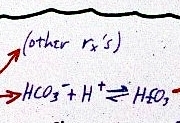 (other rₓ's)
HCO₃⁻ + H⁺ ⇌ H₂CO₃